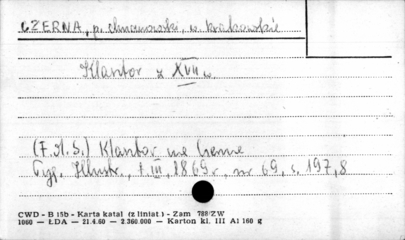 CZERNA, p. chrzanowski, w. krakowskie
Klasztor z XVII w.
(F.M.S.) Klasztor na Czernie
Tyg. Illustr., t. III, 1869 r. nr 69, s. 197,8
CWD - B 15b - Karta katal (z liniat) - Zam 788/ZW
1060 — ŁDA — 21.4.60 — 2.360.000 — Karton kl. III A1 160 g